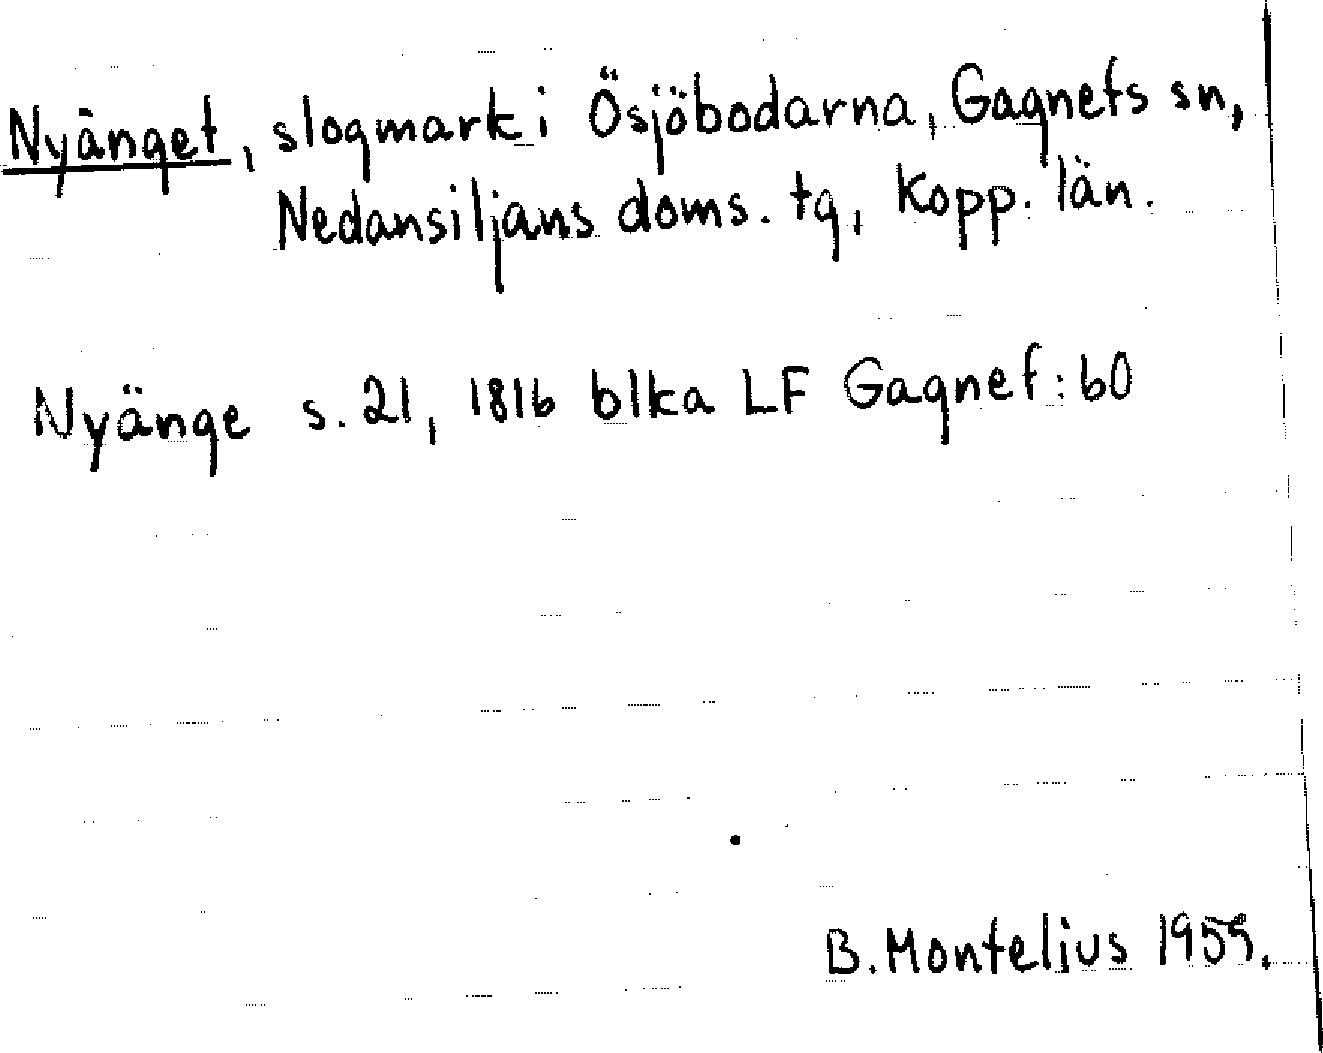 Nyänget, slogmark i Ösjöbodarna, Gagnefs sn,
Nedansiljans doms. tg, Kopp. län.
Nyänge s. 21, 1816 blka LF Gagnef:60
B. Montelius 1959.